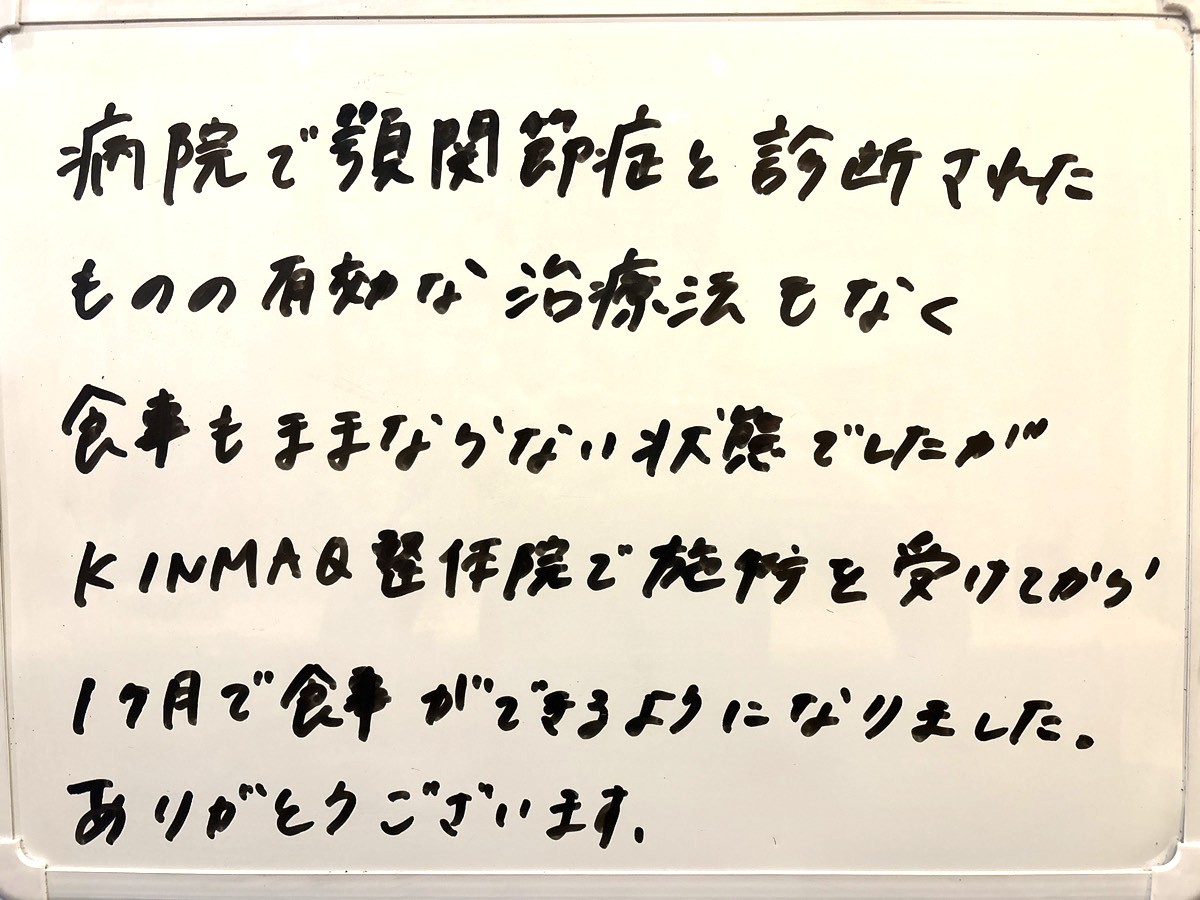 病院で顎関節症と診断された
ものの有効な治療法もなく
食事もままならない状態でしたが
KINMAQ整体院で施術を受けてから
1ヶ月で食事ができるようになりました。
ありがとうございます。